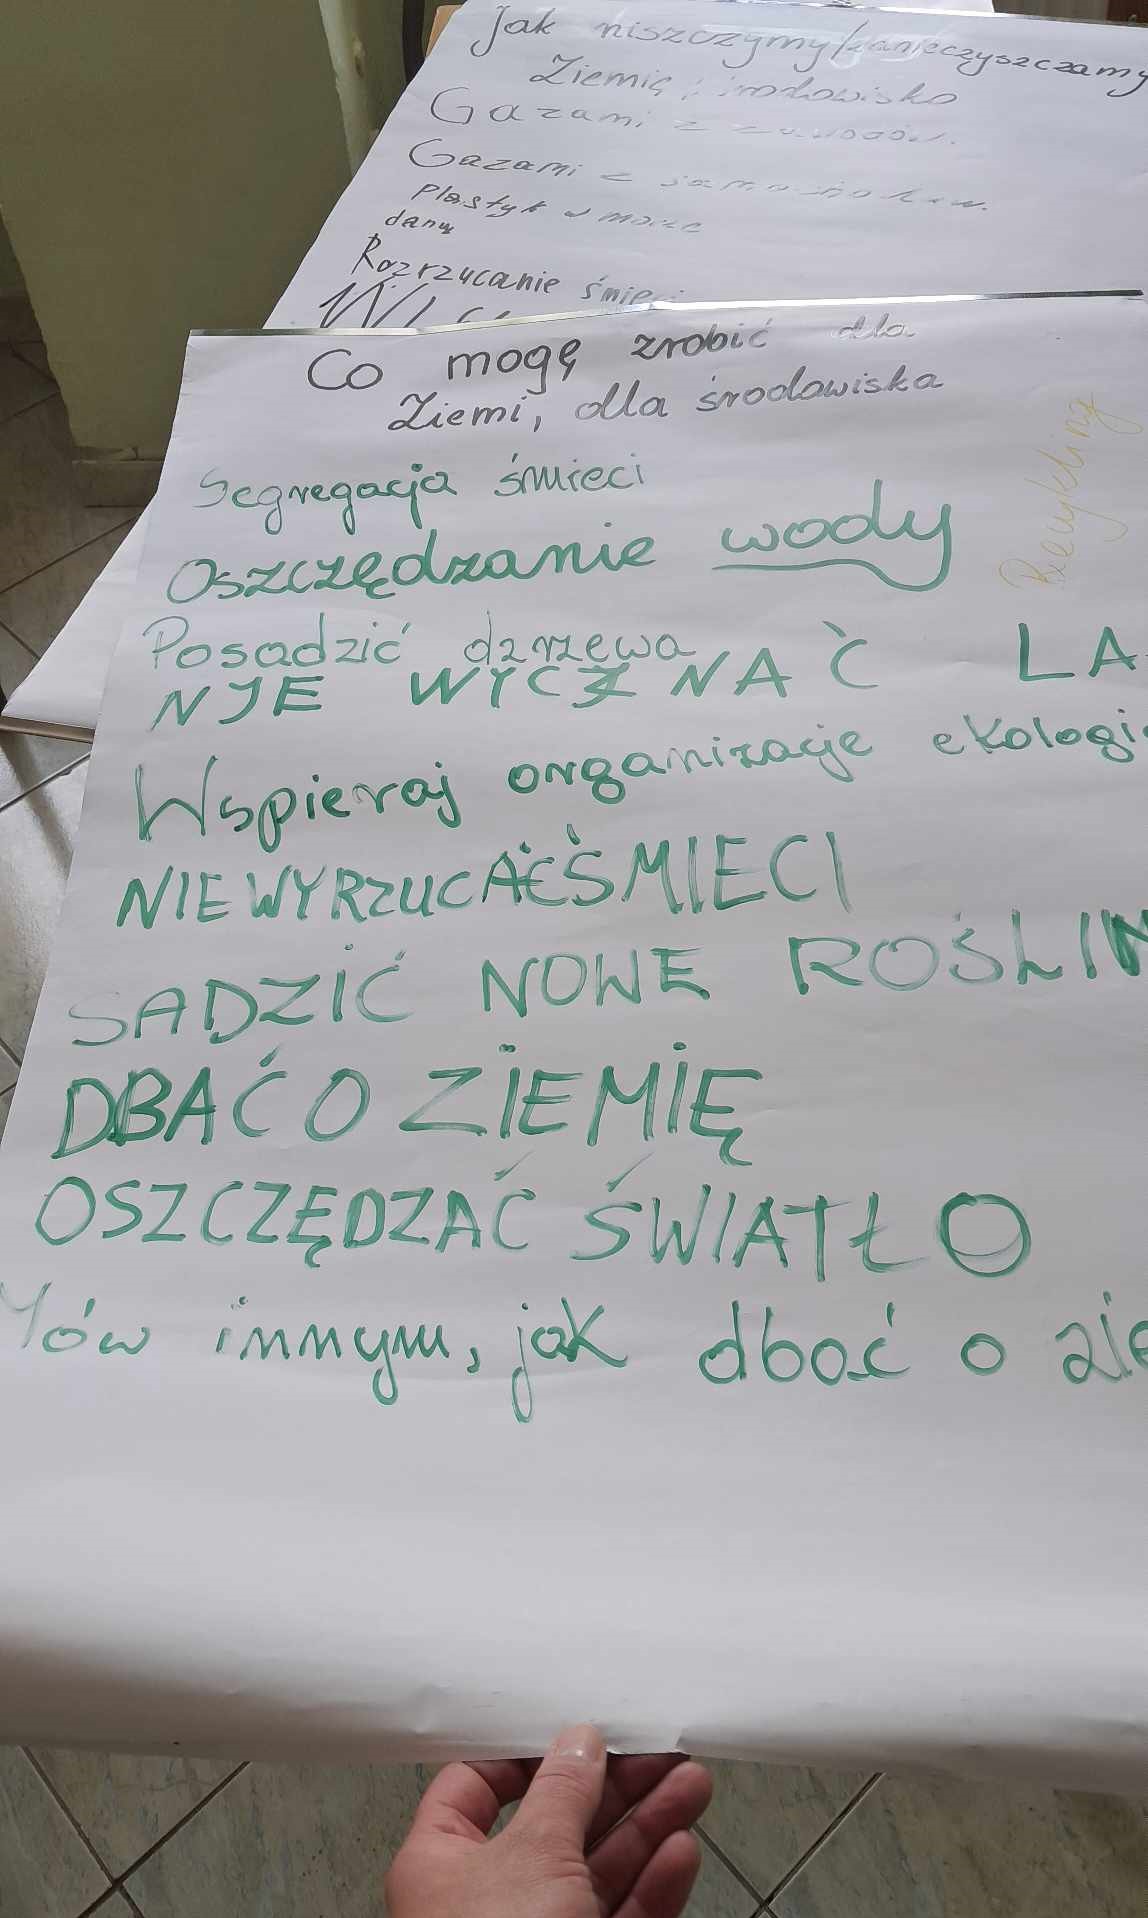 Jak niszczymy/zanieczyszczamy
Ziemię i środowisko
Gazami z zawodów.
Gazami z samochodów.
Plastyk w morze
danę
Rozrzucanie śmieci
Co mogę zrobić dla
Ziemi, dla środowiska
Recykling
Segregacja śmieci
Oszczędzanie wody
Posadzić dzrzewa
NIE WYCZNAĆ LA
Wspieraj organizacje ekologi
NIEWYRZUCAĆŚMIECI
SADZIĆ NOWE ROŚLIN
DBAĆ O ZIEMIĘ
OSZCZĘDZAĆ ŚWIATŁO
Mów innym, jak dbać o zie